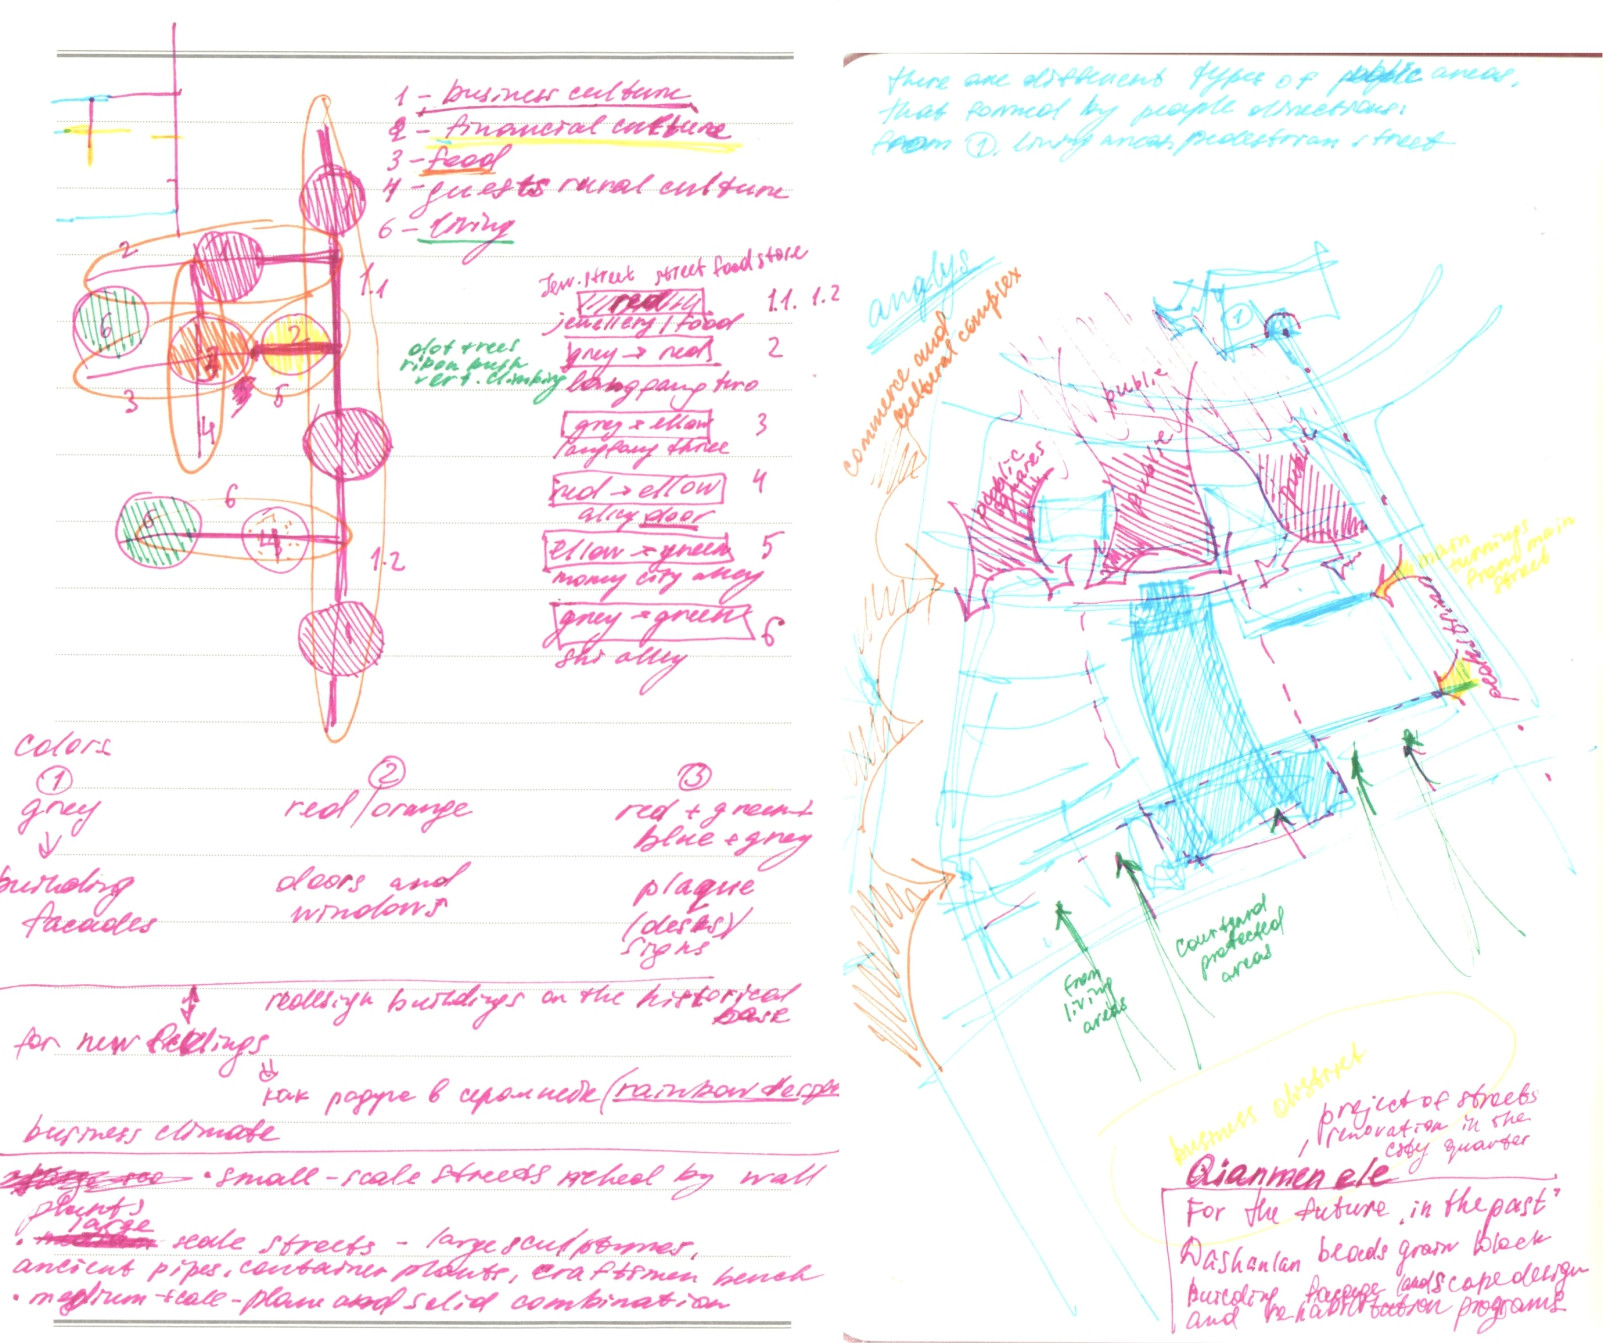 1 - business culture
2 - financial culture
3 - food
4 - guests rural culture
6 - living
Jew. street street food store
red 1.1. 1.2
jewellery / food
grey → red 2
langfang two
grey → ellow 3
langfang three
red → ellow 4
alley door
ellow → green 5
money city alley
grey → green 6
shi alley
dot trees
ribon bush
vert. climbing
2
1
1.1
6
3
2
3
5
4
1
6
6
4
1.2
1
colors
1 2 3
grey red/orange red + green +
blue + grey
building doors and plaque
facades windows (desks)/
signs
redesign buildings on the historical
base
for new feelings
как радуге в сером небе (rainbow design
business climate
• small-scale streets by wall
plants
large
• scale streets - large sculptures,
ancient pipes, container plants, craftsmen bench
• medium-scale - plane and solid combination
there are different types of public areas,
that formed by people directions.
from 1. living areas, pedestrian street
analys
commerce and
cultural complex
1
public
public
squares
public
public
main
turnings
from main
street
pedestrian
from
living
areas
courtyard
protected
areas
business district
project of streets
renovation in the
city quarter
Qianmen ele
For the future „in the past"
Dashanlan beads grain block
building facage landscape design
and rehabilitation programs